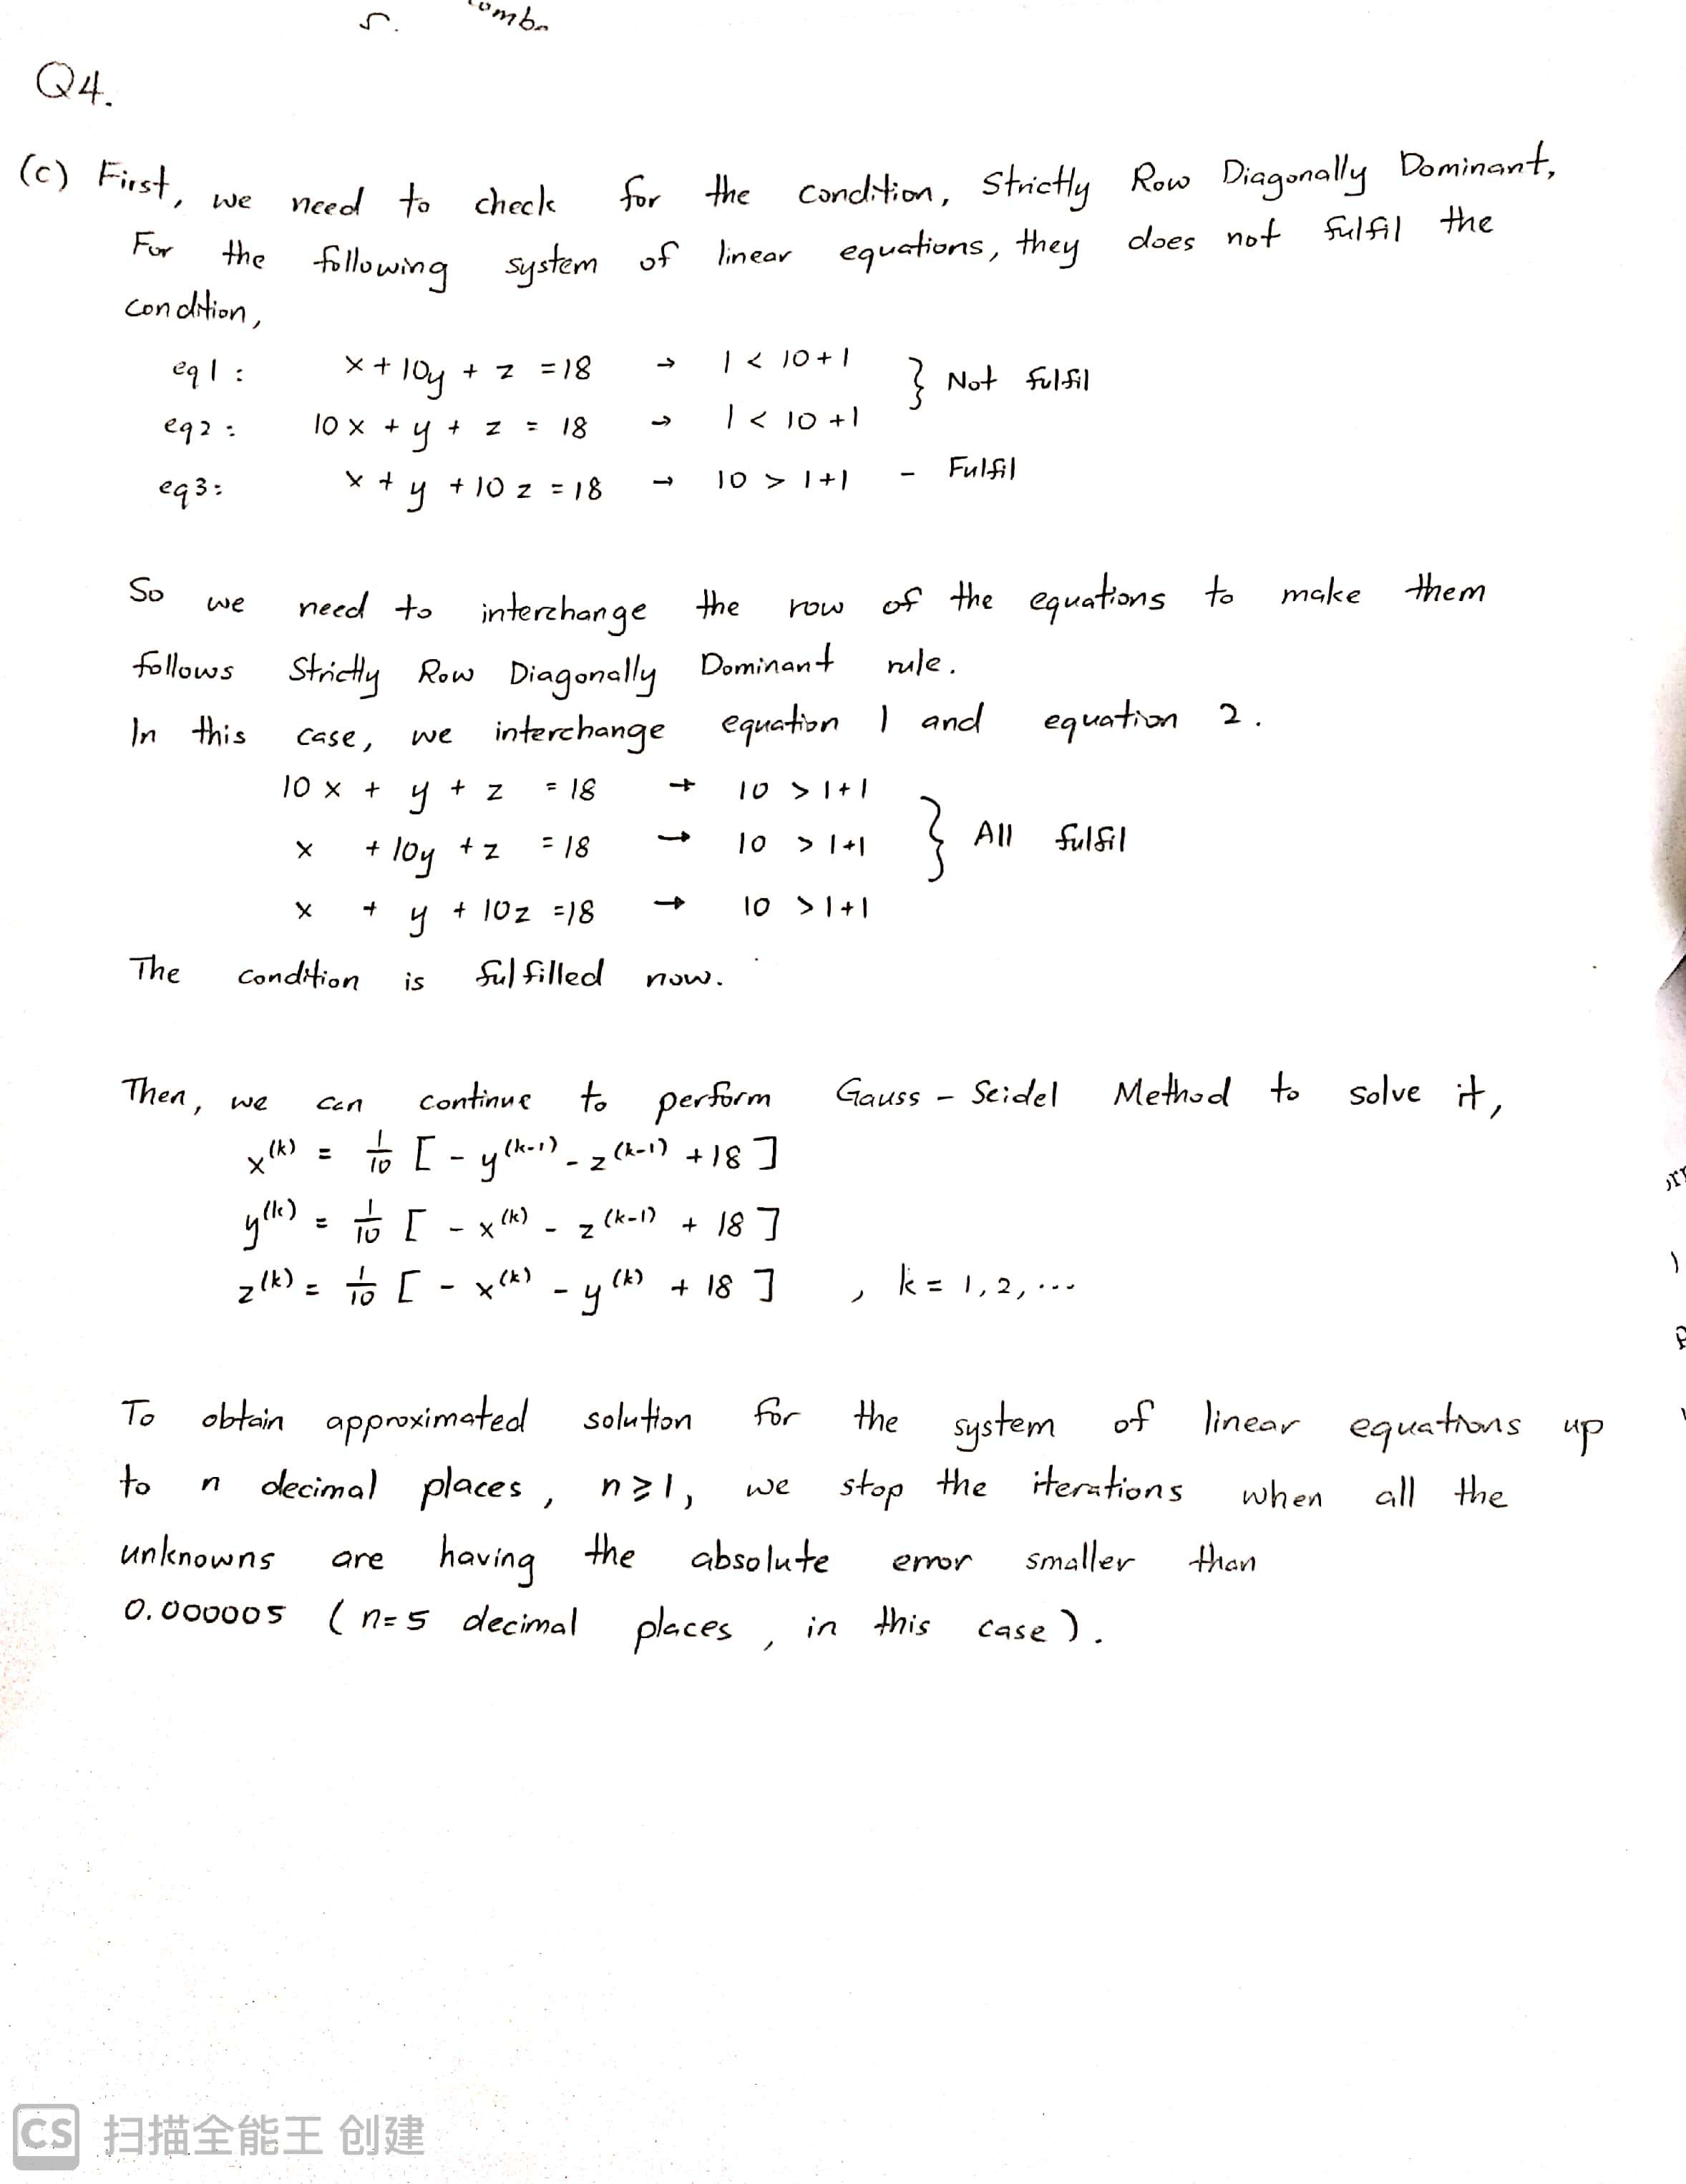 Q4.
(c) First, we need to check for the condition, Strictly Row Diagonally Dominant,
For the following system of linear equations, they does not fulfil the
condition,
eq1: x + 10y + z = 18 → 1 < 10+1
} Not fulfil
eq2: 10x + y + z = 18 → 1 < 10+1
eq3: x + y + 10z = 18 → 10 > 1+1 - Fulfil
So we need to interchange the row of the equations to make them
follows Strictly Row Diagonally Dominant rule.
In this case, we interchange equation 1 and equation 2.
10x + y + z = 18 → 10 > 1+1
x + 10y + z = 18 → 10 > 1+1 } All fulfil
x + y + 10z = 18 → 10 > 1+1
The condition is fulfilled now.
Then, we can continue to perform Gauss - Seidel Method to solve it,
x^(k) = 1/10 [ - y^(k-1) - z^(k-1) + 18 ]
y^(k) = 1/10 [ - x^(k) - z^(k-1) + 18 ]
z^(k) = 1/10 [ - x^(k) - y^(k) + 18 ] , k = 1, 2, ...
To obtain approximated solution for the system of linear equations up
to n decimal places, n ≥ 1, we stop the iterations when all the
unknowns are having the absolute error smaller than
0.000005 ( n = 5 decimal places, in this case ).
CS 扫描全能王 创建